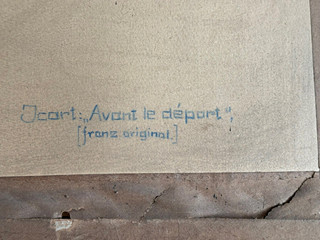 Icart: „Avant le départ",
[franz. original.]